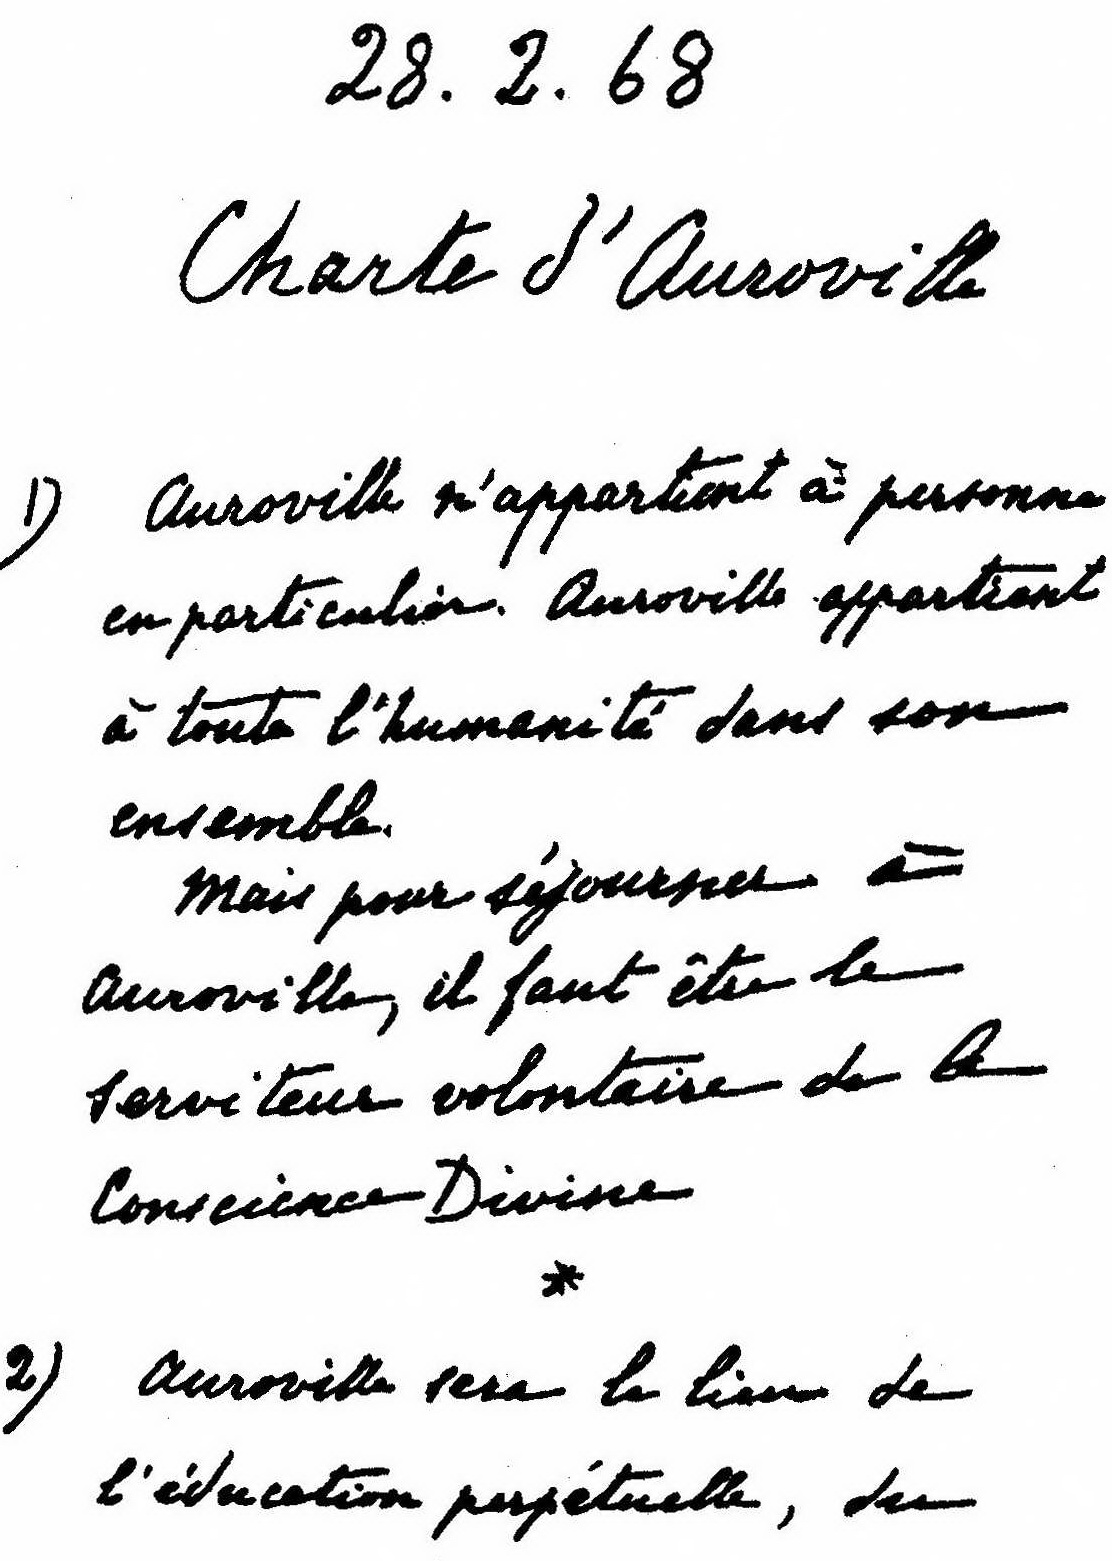 28. 2. 68
Charte d'Auroville
1) Auroville n'appartient à personne
en particulier. Auroville appartient
à toute l'humanité dans son
ensemble.
Mais pour séjourner à
Auroville, il faut être le
serviteur volontaire de la
Conscience Divine
*
2) Auroville sera le lieu de
l'éducation perpétuelle, du